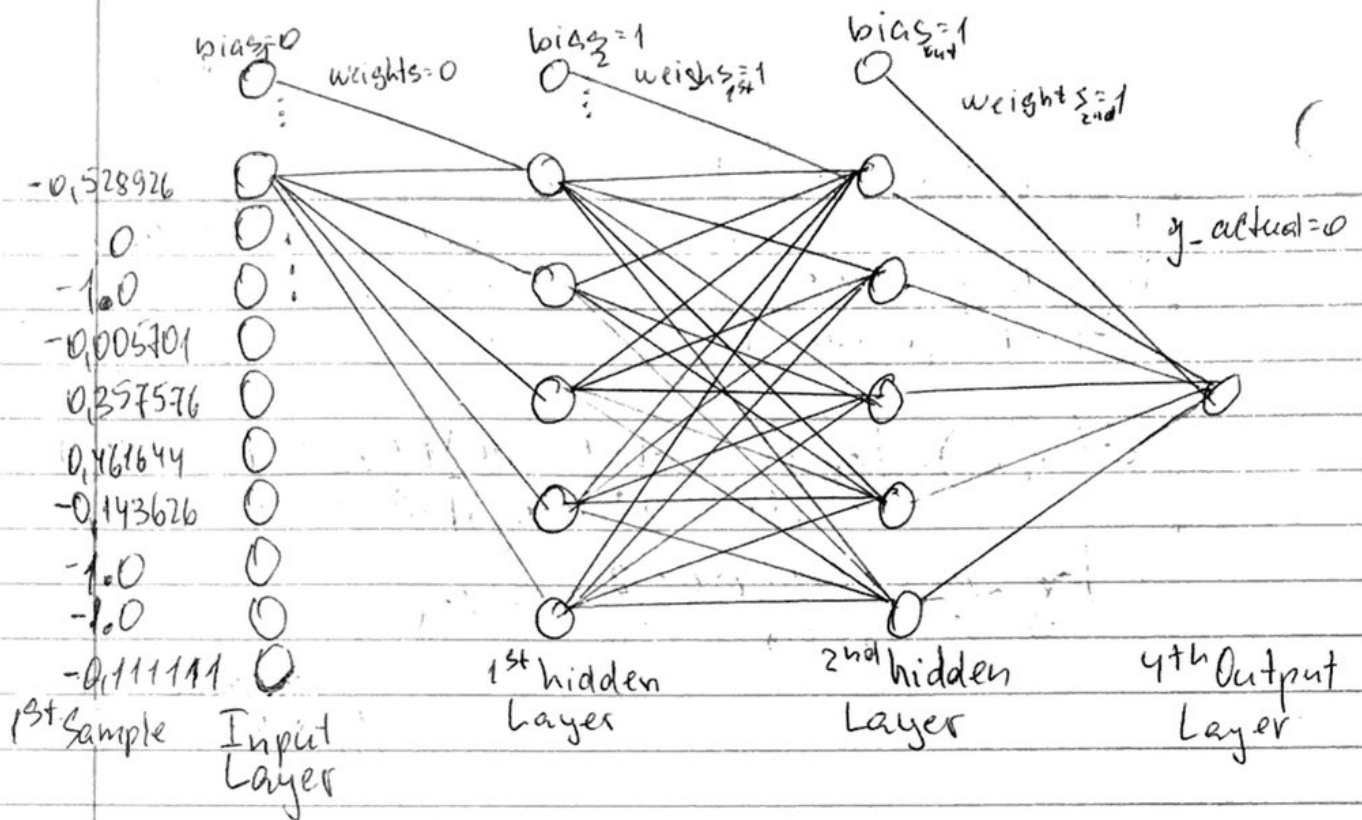 bias=0
1
weights=0
bias=1
2
weighs=1
1st
bias=1
out
weights=1
2nd
-0,528926
0
-1.0
-0,005701
0,357576
0,461644
-0,143626
-1.0
-1.0
-0,111111
y_actual=0
1st Sample
Input
Layer
1st hidden
Layer
2nd hidden
Layer
4th Output
Layer